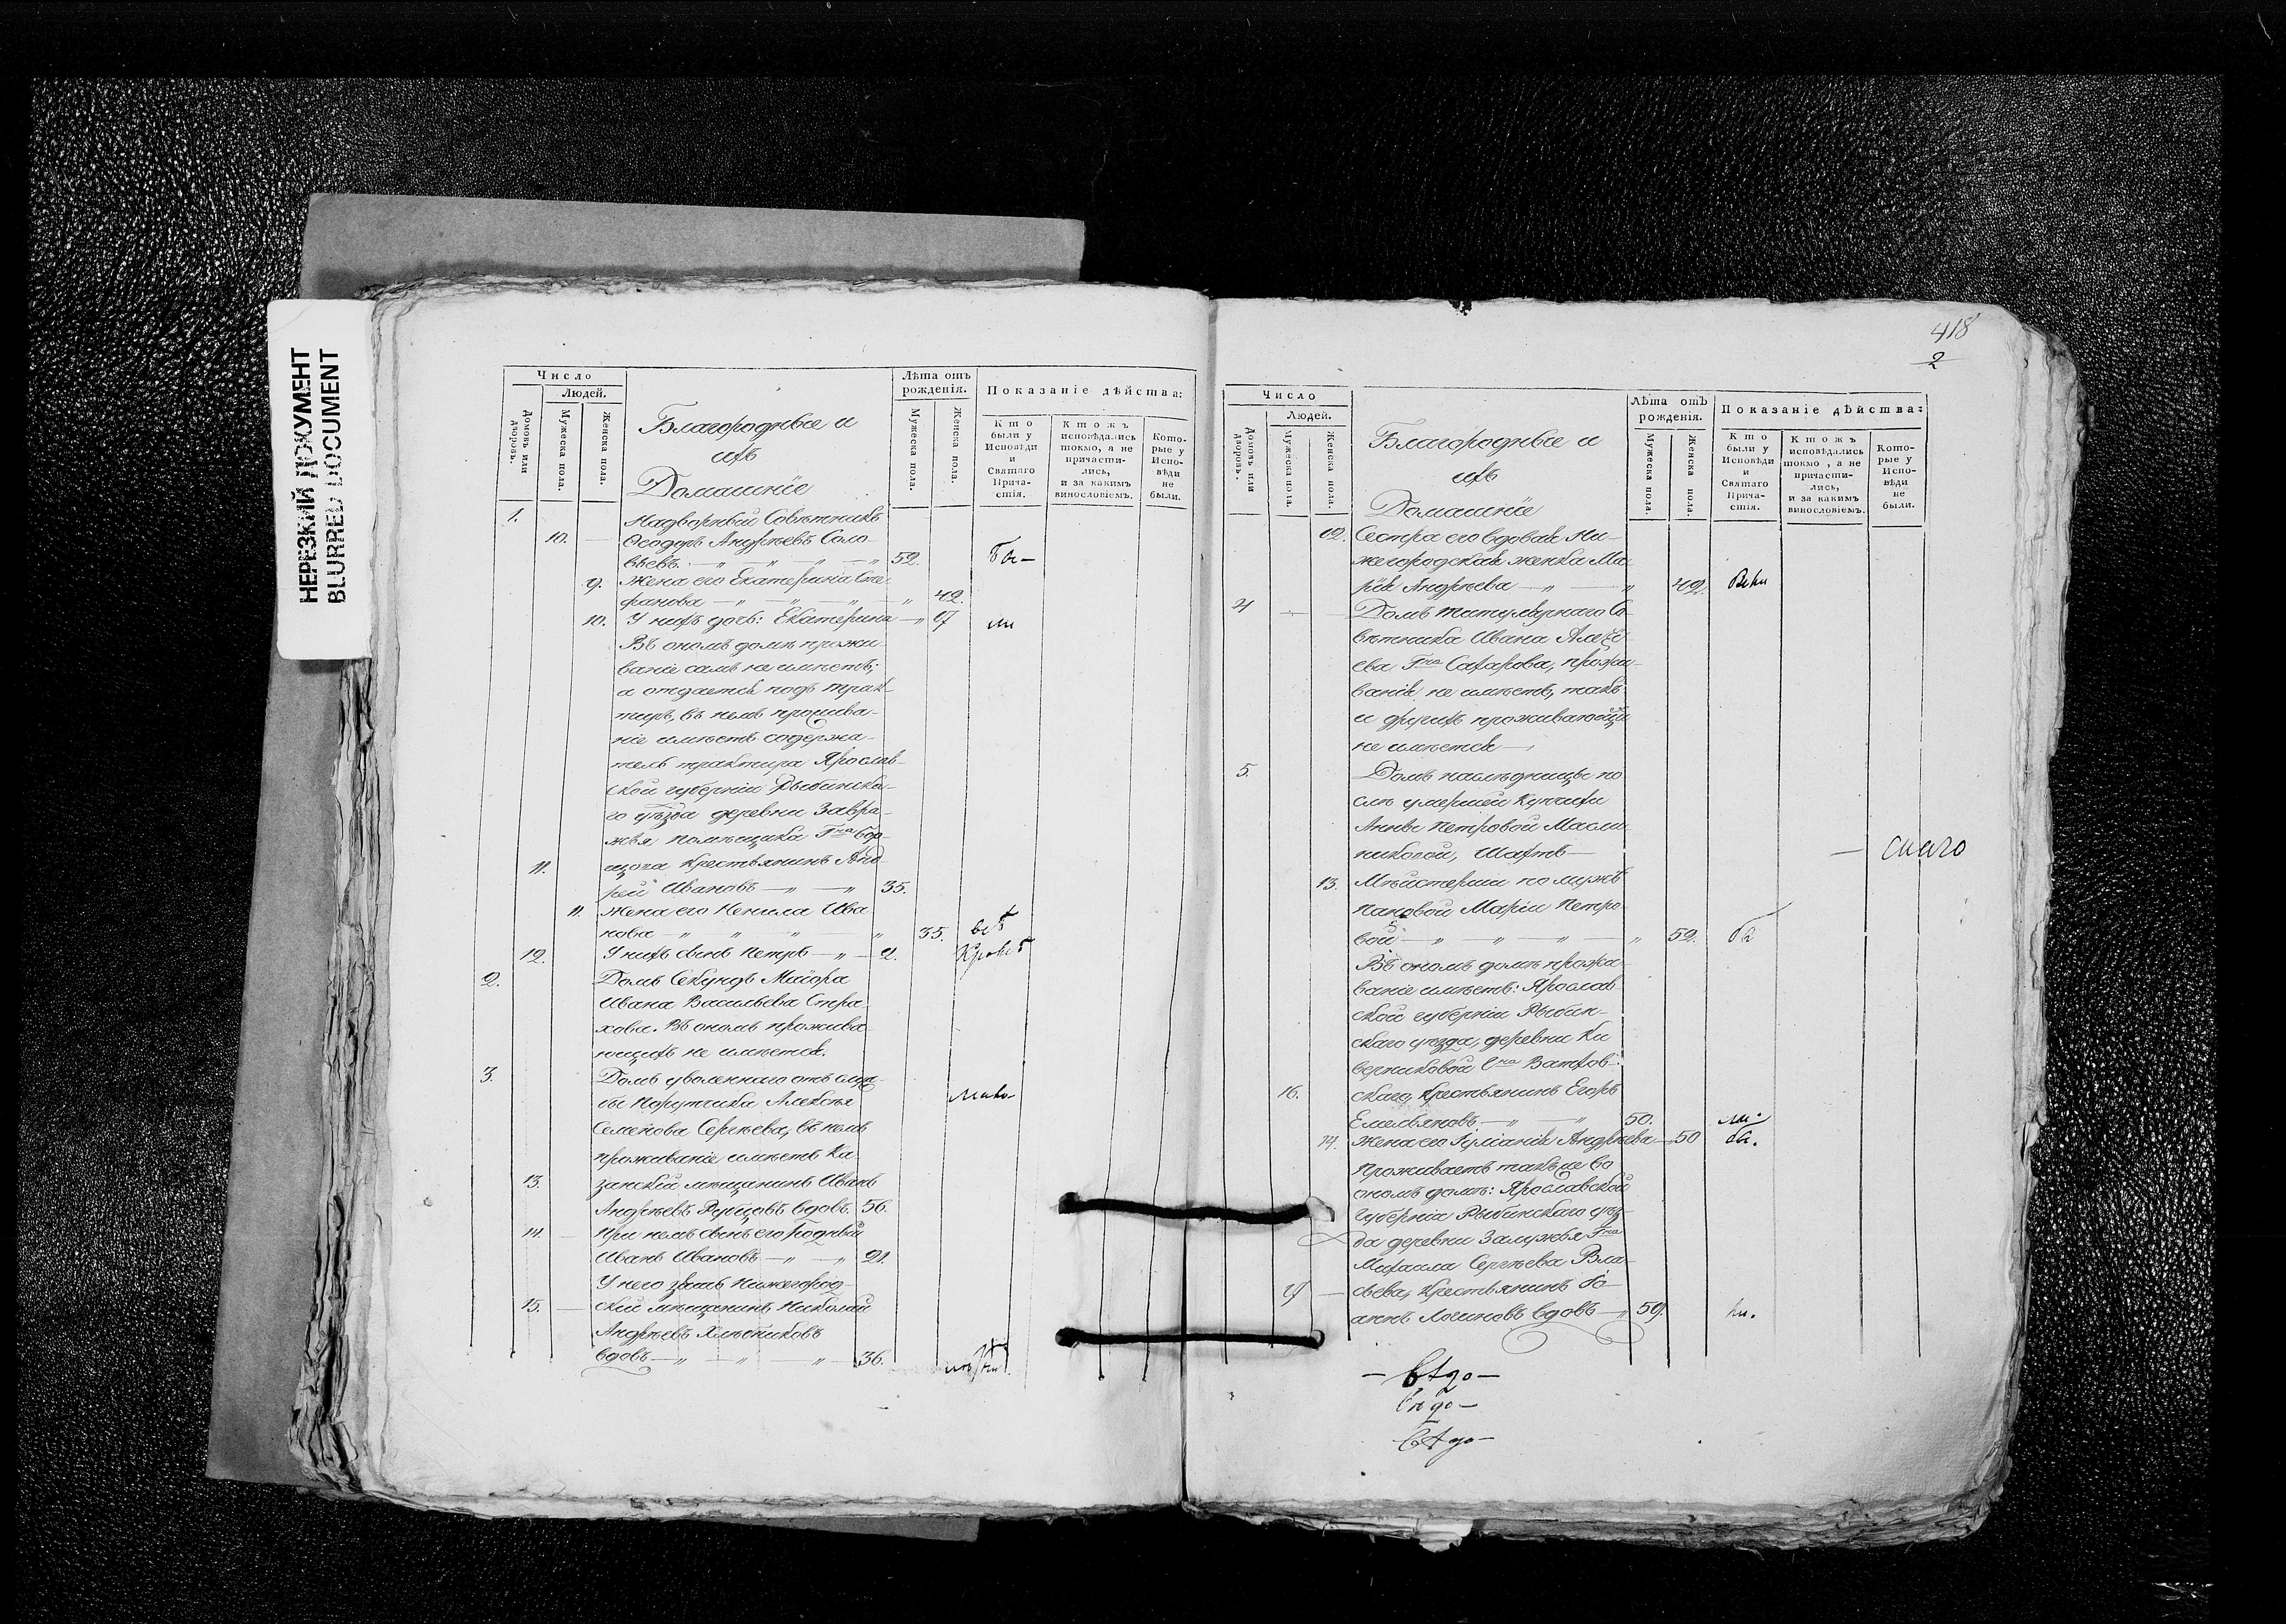 НЕРЕЗКИЙ ДОКУМЕНТ
BLURRED DOCUMENT
Число
Людей.
Домовъ или дворовъ.
Мужеска пола.
Женска пола.
Благородные и
ихъ
Домашніе
Лѣта отъ рожденія.
Мужеска пола.
Женска пола.
Показаніе дѣйства:
Кто были у Исповѣди и Святаго Причастія.
Ктожъ исповѣдались токмо, а не причастились, и за какимъ винословіемъ.
Которые у Исповѣди не были.
1. Надворный Совѣтникъ
10. — Ѳеодоръ Андрѣевъ Соло-
вьевъ — 52. Бы-
9. Жена его Екатерина Сте-
фанова — 42.
10. У нихъ дочь: Екатерина — 17 ли
Въ ономъ домѣ прожи-
ваніе самъ не имѣетъ;
а отдается подъ трак-
тиръ, въ немъ прожива-
ніе имѣетъ содержа-
тель трактира Ярослав-
ской губерніи Рыбинска-
го уѣзда деревни Завра-
жья помѣщика Гна
11. крестьянинъ Анд-
рей Ивановъ — 35.
11. Жена его Ненила Ива-
нова — 35.
12. У нихъ сынъ Петръ — 2.
2. Домъ Секундъ Маіора
Ивана Васильева Стра-
хова. Въ ономъ прожива-
ющихъ не имѣется.
3. Домъ уволеннаго отъ служ-
бы Порутчика Алексѣя
Семенова Сергѣева, въ немъ
проживаніе имѣетъ Ка-
13. занскій мѣщанинъ Иванъ
Андрѣевъ Рубцовъ вдовъ. 56.
14. При немъ сынъ его родный
Иванъ Ивановъ — 21.
У него зять Нижегород-
15. — скій мѣщанинъ Николай
Андрѣевъ Хлѣбниковъ
вдовъ — 36.
418
2
Число
Людей.
Домовъ или дворовъ.
Мужеска пола.
Женска пола.
Благородные и
ихъ
Домашніе
Лѣта отъ рожденія.
Мужеска пола.
Женска пола.
Показаніе дѣйства:
Кто были у Исповѣди и Святаго Причастія.
Ктожъ исповѣдались токмо, а не причастились, и за какимъ винословіемъ.
Которые у Исповѣди не были.
12. Сестра его вдовая Ни-
жегородская женка Ма-
рія Андрѣева — 42.
4 Домъ титулярнаго Со-
вѣтника Ивана Алекѣ-
ева Гна Сахарова, прожи-
ванія не имѣетъ, такъ
и другихъ проживающихъ
не имѣется —
5. Домъ наслѣдницы по-
слѣ умершей купчихи
Анны Петровой Масле-
никовой, Шахтъ — — скаго
13. Мѣйстерши по мужѣ
Пановой Маріи Петро-
вой — 52. бы
Въ ономъ домѣ прожи-
ваніе имѣетъ: Ярослав-
ской губерніи Рыбин-
скаго уѣзда, деревни Ки-
верниковой Гна Ватков-
16. скаго, крестьянинъ Егоръ
Емельяновъ — 50. ли
14. Жена его Іуліанія Андрѣева — 50 бы.
Проживаетъ также во
ономъ домѣ: Ярославской
губерніи Рыбинскаго уѣз-
да деревни Залужья Гна
Михаила Сергѣева Вла-
17 — сьева, крестьянинъ
Логиновъ вдовъ — 59. ли.